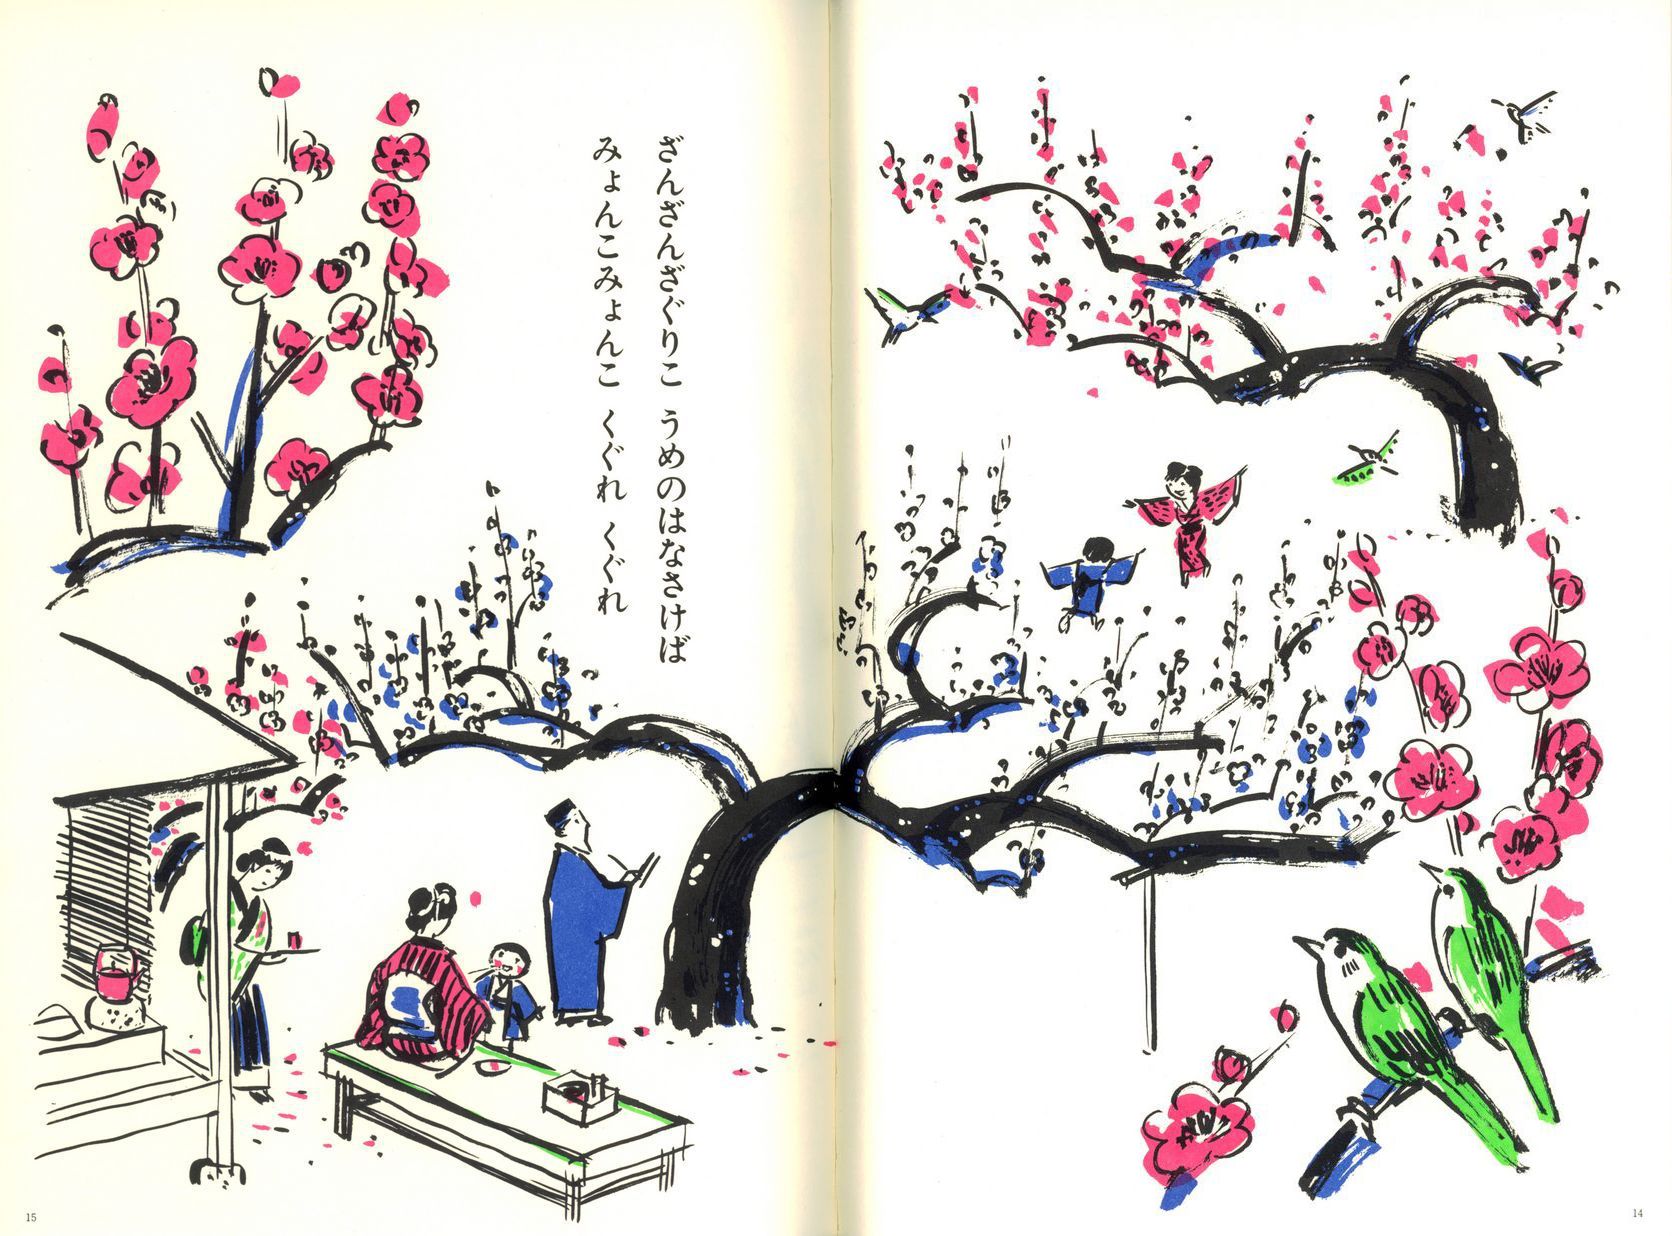 ざんざんざぐりこ　うめのはなさけば
みょんこみょんこ　くぐれ　くぐれ
15
14